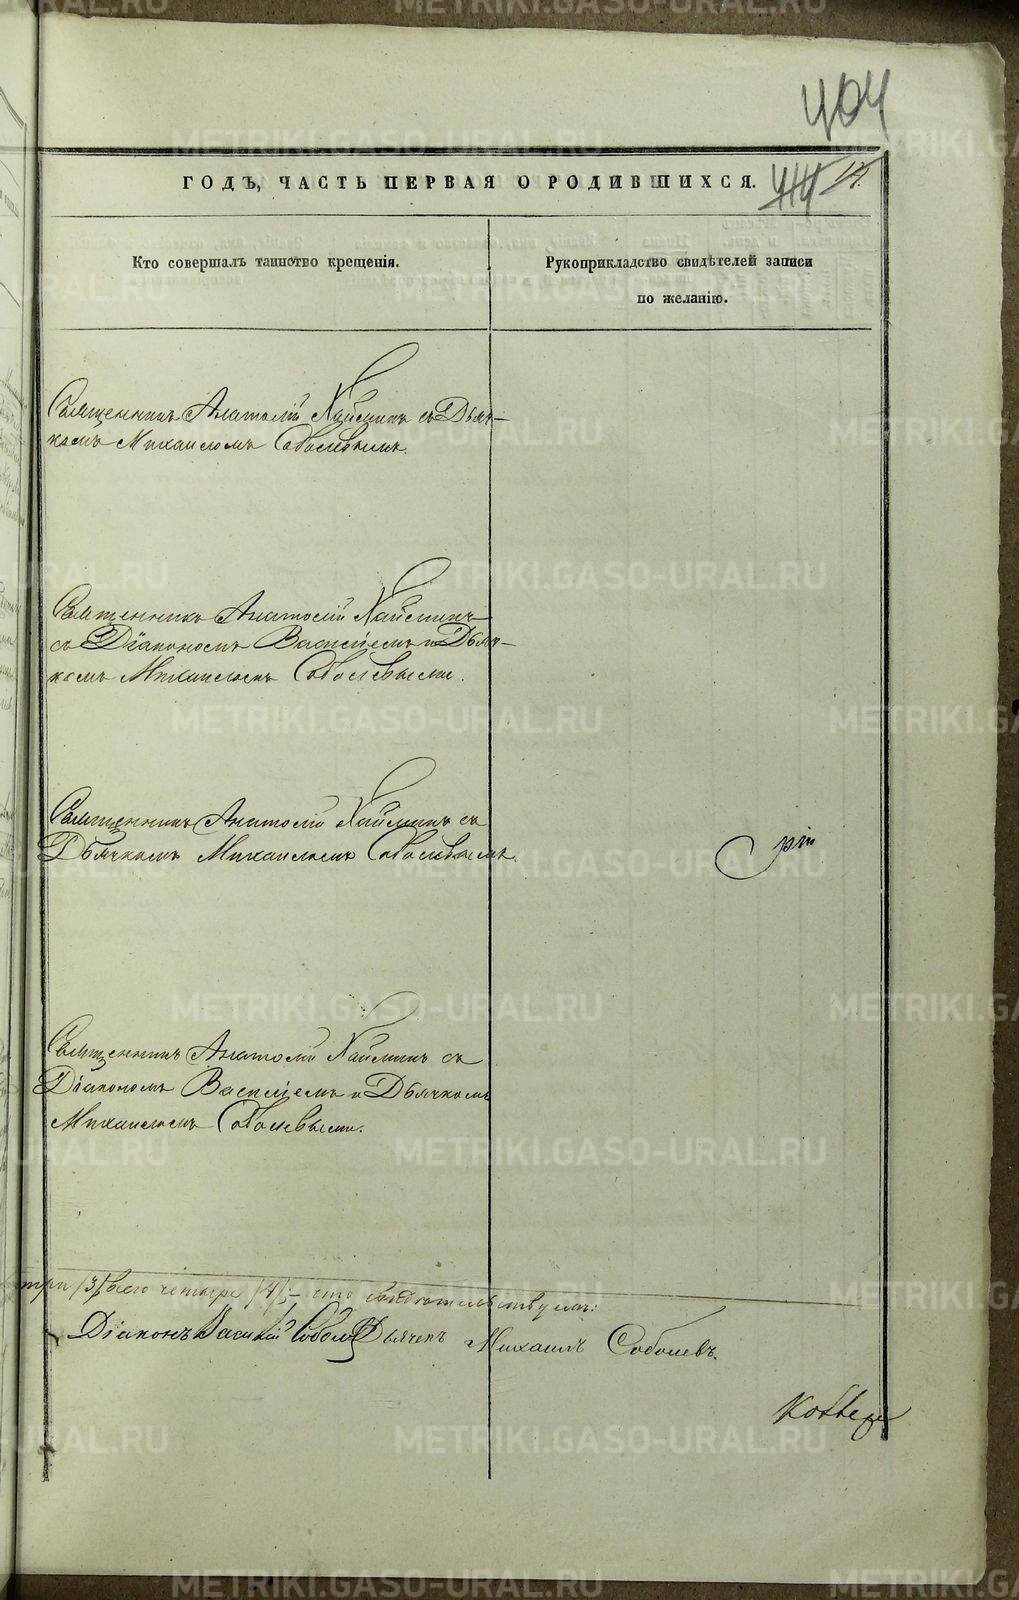 404
ГОДЪ, ЧАСТЬ ПЕРВАЯ О РОДИВШИХСЯ.
Кто совершалъ таинство крещенія.
Рукоприкладство свидѣтелей записи
по желанію.
Священникъ Анатолій съ Дьяч-
комъ Михаиломъ Соболевымъ.
Священникъ Анатолій
съ Діакономъ Василіемъ и Дьяч-
комъ Михаиломъ Соболевыми.
Священникъ Анатолій съ
Дьячкомъ Михаиломъ Соболевымъ.
Священникъ Анатолій съ
Діакономъ Василіемъ и Дьячкомъ
Михаиломъ Соболевыми.
три /3/ всего четыре /4/, что свидѣтельствуемъ:
Діаконъ Василій Соболевъ Дьячекъ Михаилъ Соболевъ.
METRIKI.GASO-URAL.RU